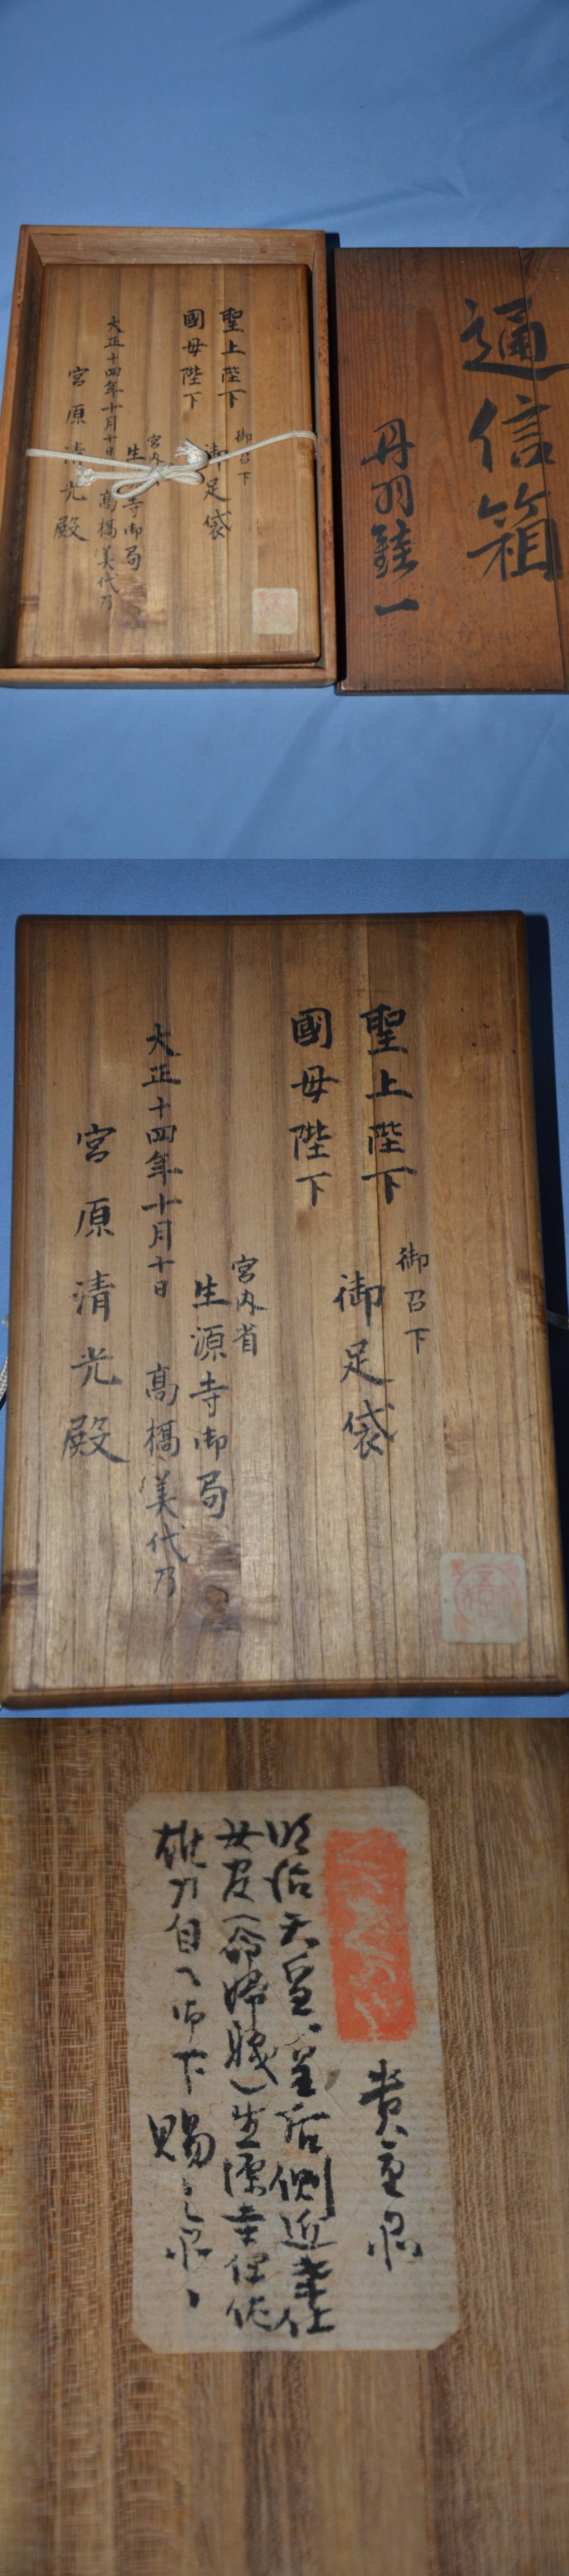 聖上陛下
國母陛下
御召下
御足袋
宮内
生
寺御局
大正十四年十月十日
高橋美代乃
宮原清光殿
通信箱
丹羽鉎一
聖上陛下
國母陛下
御召下
御足袋
宮内省
生源寺御局
大正十四年十月十日 高橋美代乃
宮原清光殿
貴重品
明治天皇、皇后側近奉仕
女官(命婦職)生源寺
雄乃自
下賜之品、